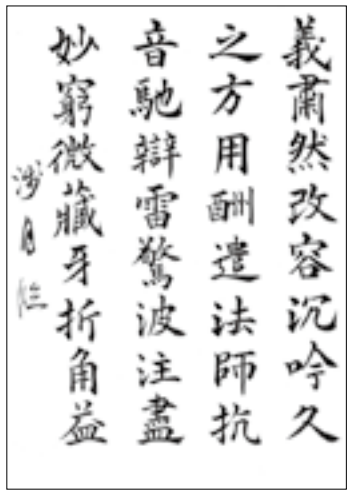 義肅然改容沉吟久
之方用酬遣法師抗
音馳辯雷驚波注盡
妙窮微藏牙折角益